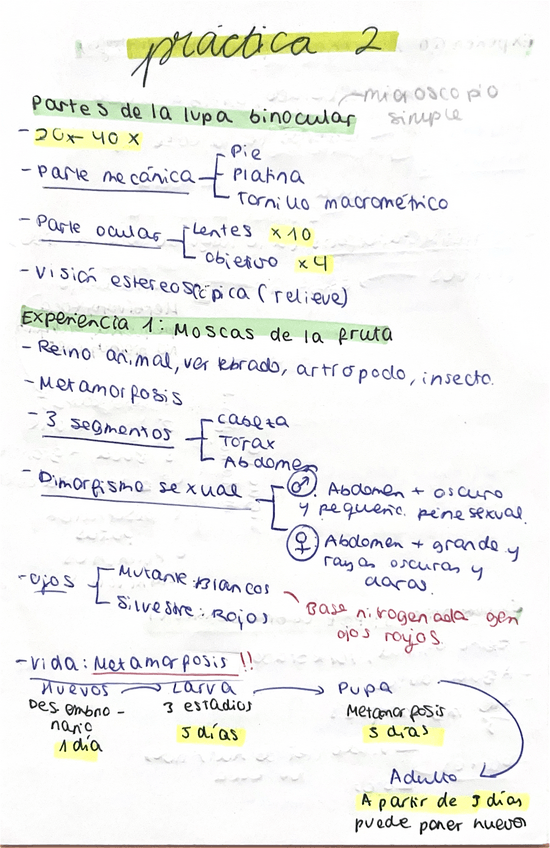 práctica 2
Partes de la lupa binocular
microscopio
simple
- 20x-40x
- Parte mecánica
Pie
Platina
Tornillo macrométrico
- Parte ocular
Lentes x10
Objetivo x4
- Visión estereoscópica (relieve)
Experiencia 1: Moscas de la fruta
- Reino animal, vertebrado, artrópodo, insecto.
- Metamorfosis
- 3 segmentos
Cabeza
Torax
Abdomen
- Dimorfismo sexual
♂ Abdomen + oscuro
y pequeño. peine sexual.
♀ Abdomen + grande y
rayas oscuras y
claras.
- Ojos
Mutante: Blancos
Silvestre: Rojos
Base nitrogenada gen
ojos rojos
- Vida: Metamorfosis!!
Huevos → Larva → Pupa
Des embrio-
nario
1 día
3 estadios
5 días
Metamorfosis
5 días
Adulto
A partir de 3 días
puede poner huevos